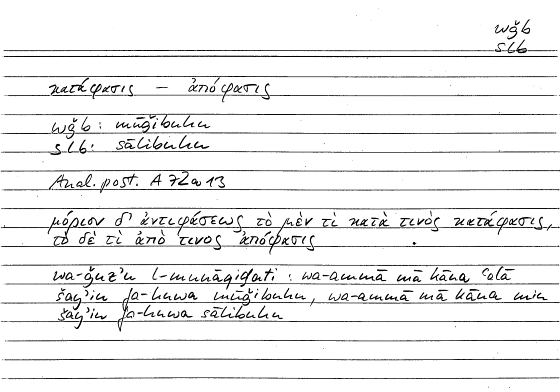 wǧb
slb
κατάφασις — ἀπόφασις
wǧb: mūǧibuhu
slb: sālibuhu
Anal. post. A 72a13
μόριον δ' ἀντιφάσεως τὸ μὲν τὶ κατὰ τινὸς κατάφασις,
τὸ δὲ τὶ ἀπὸ τινος ἀπόφασις
wa-ǧuz'u l-munāqiḍati: wa-ammā mā kāna ʿalā
šay'in fa-huwa mūǧibuhu, wa-ammā mā kāna min
šay'in fa-huwa sālibuhu